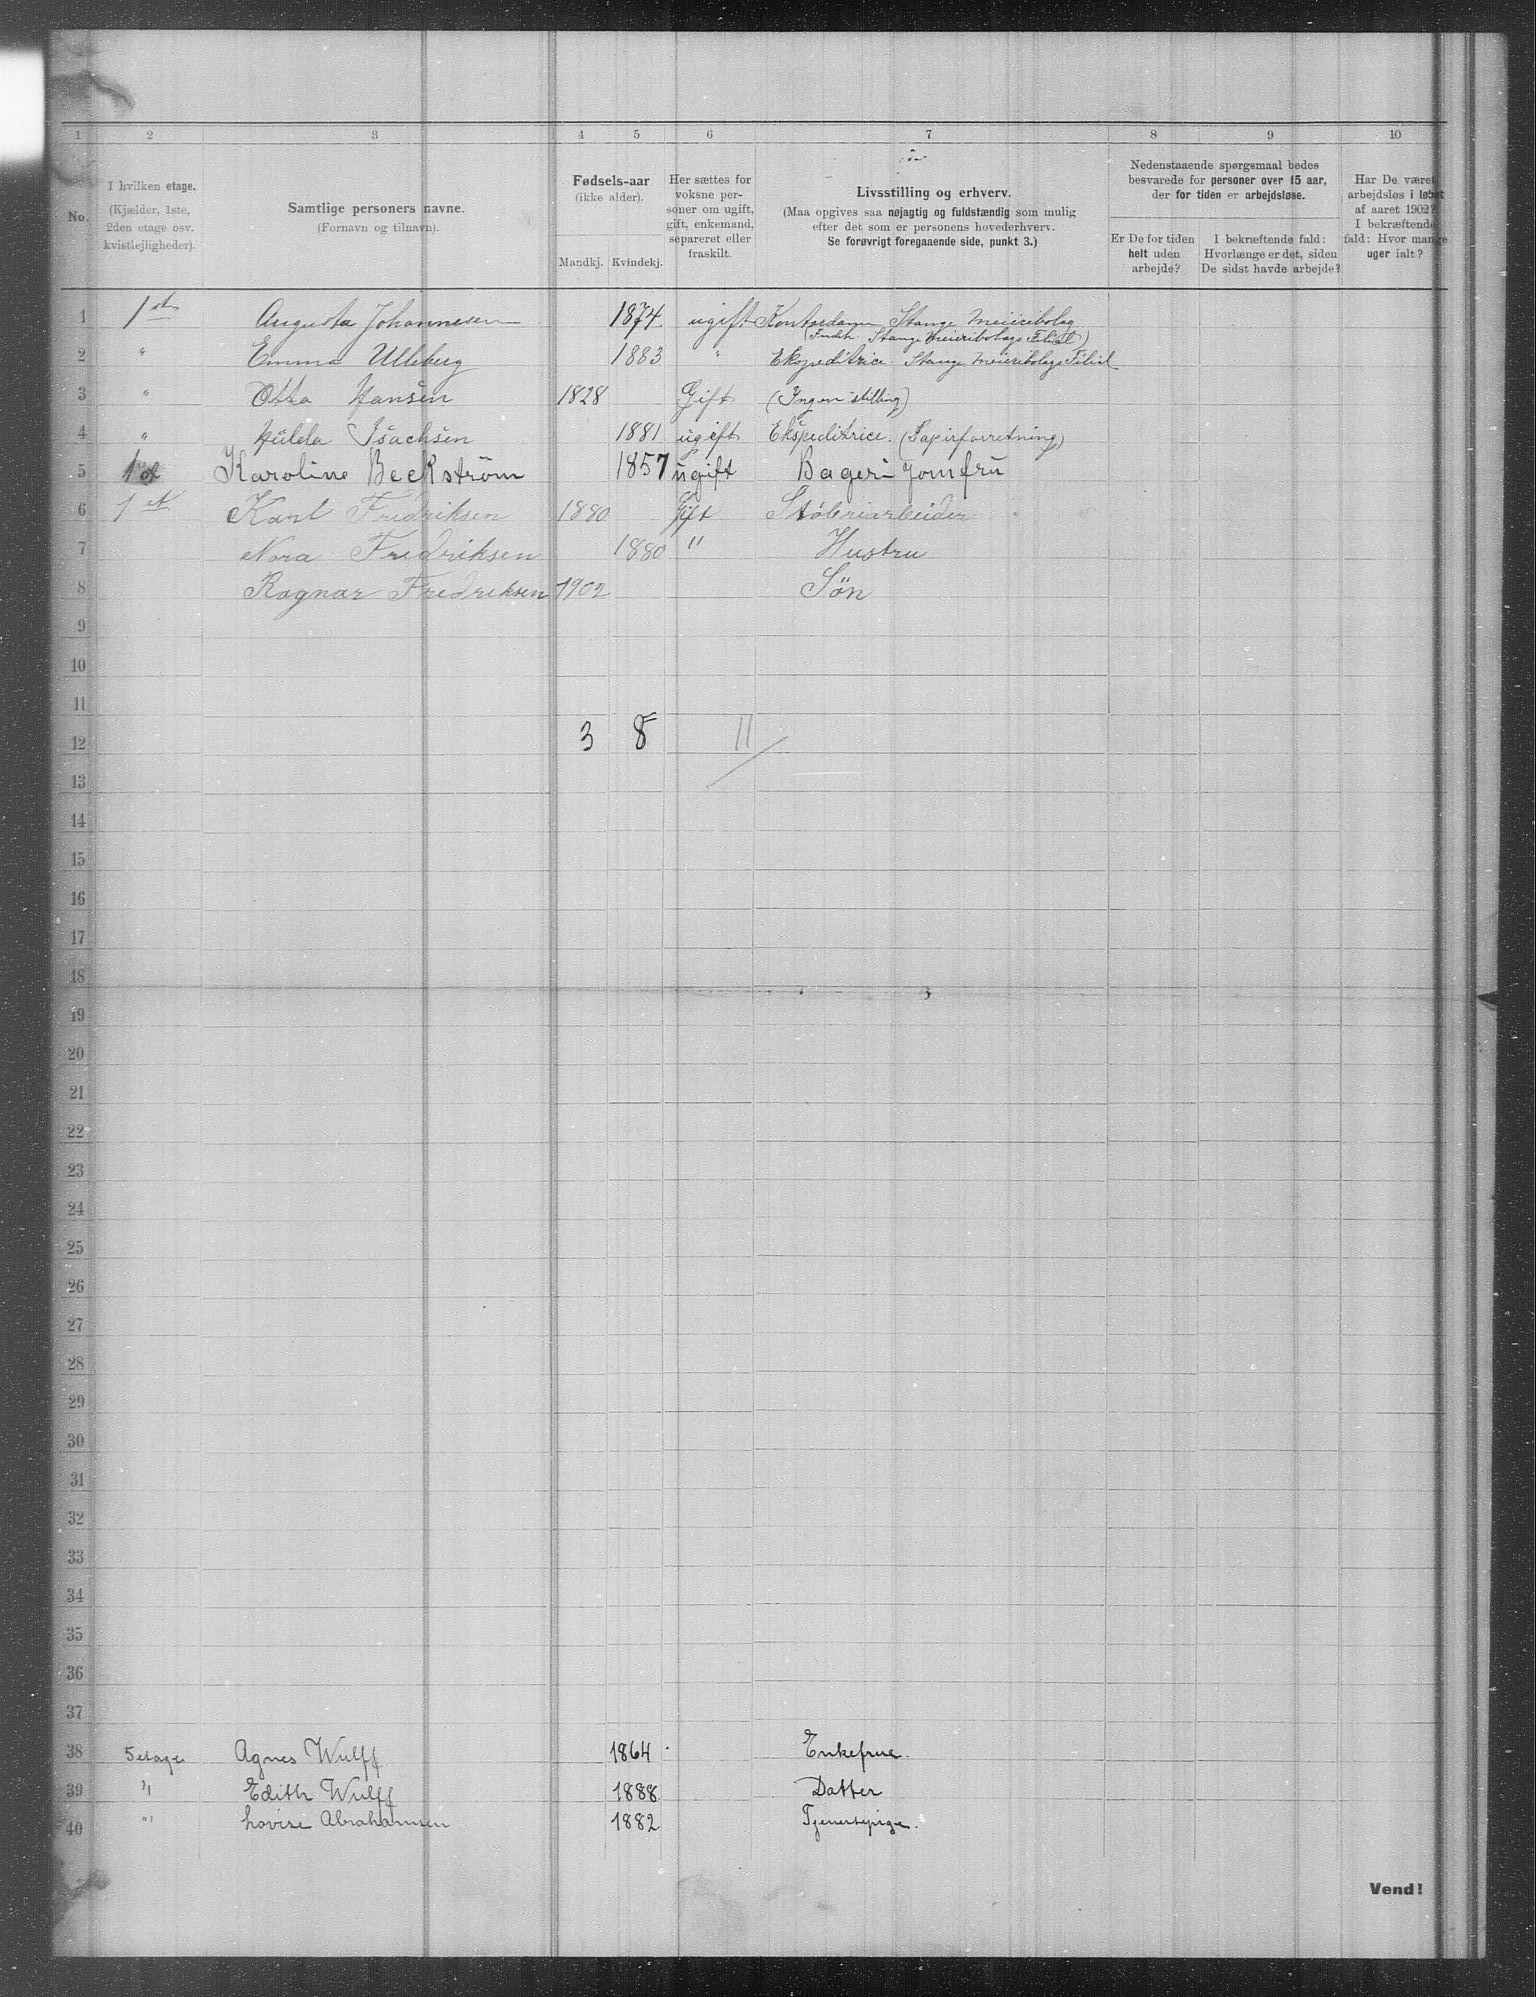 1 2 3 4 5 6 7 8 9 10
No.
I hvilken etage.
(Kjælder, 1ste,
2den etage osv.
kvistlejligheder).
Samtlige personers navne.
(Fornavn og tilnavn).
Fødsels-aar
(ikke alder).
Mandkj. Kvindekj.
Her sættes for
voksne per-
soner om ugift,
gift, enkemand,
separeret eller
fraskilt.
Livsstilling og erhverv.
(Maa opgives saa nøjagtig og fuldstændig som mulig
efter det som er personens hovederhverv.
Se forøvrigt foregaaende side, punkt 3.)
Nedenstaaende spørgsmaal bedes
besvarede for personer over 15 aar,
der for tiden er arbejdsløse.
Er De for tiden
helt uden
arbejde?
I bekræftende fald:
Hvorlænge er det, siden
De sidst havde arbejde?
Har De været
arbejdsløs i løbet
af aaret 1902?
I bekræftende
fald: Hvor mange
uger ialt?
1 1st Augusta Johannesen 1874 ugift Kontordame Stange Meieribolag
(Indeh. Stange Meieribolags Filial)
2 " Emma Ulleberg 1883 " Ekspeditrice Stange Meieribolags Filial
3 " Otto Hansen 1828 Gift (Ingen stilling)
4 " Hulda Isachsen 1881 ugift Ekspeditrice. (Papirforretning)
5 1st Karoline Beckström 1857 ugift Bageri jomfru
6 1st Karl Fredriksen 1880 Gift Støberiarbeider
7 Nora Fredriksen 1880 " Hustru
8 Ragnar Fredriksen 1902 Søn
9
10
11
12 3 8 11
13
14
15
16
17
18
19
20
21
22
23
24
25
26
27
28
29
30
31
32
33
34
35
36
37
38 5 etage Agnes Wulff 1864 Enkefrue.
39 " Edith Wulff 1888 Datter
40 " Lovise Abrahamsen 1882 Tjenestepige.
Vend!